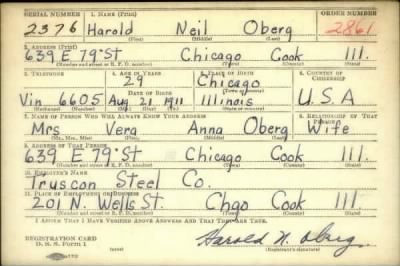 SERIAL NUMBER 1. NAME (Print) ORDER NUMBER
2376 Harold Neil Oberg 2861
(First) (Middle) (Last)
2. ADDRESS (Print)
639 E 79 St Chicago Cook Ill.
(Number and street or R. F. D. number) (Town) (County) (State)
3. TELEPHONE 4. AGE IN YEARS 5. PLACE OF BIRTH 6. COUNTRY OF CITIZENSHIP
29 Chicago
(Town or county)
DATE OF BIRTH
Vin 6605 Aug 21 1911 Illinois U.S.A
(Exchange) (Number) (Mo.) (Day) (Yr.) (State or country)
7. NAME OF PERSON WHO WILL ALWAYS KNOW YOUR ADDRESS 8. RELATIONSHIP OF THAT PERSON
Mrs Vera Anna Oberg Wife
(Mr., Mrs., Miss) (First) (Middle) (Last)
9. ADDRESS OF THAT PERSON
639 E 79 St Chicago Cook Ill.
(Number and street or R. F. D. number) (Town) (County) (State)
10. EMPLOYER'S NAME
Truscon Steel Co.
11. PLACE OF EMPLOYMENT OR BUSINESS
201 N. Wells St. Chgo Cook Ill.
(Number and street or R. F. D. number) (Town) (County) (State)
I AFFIRM THAT I HAVE VERIFIED ABOVE ANSWERS AND THAT THEY ARE TRUE.
REGISTRATION CARD
D. S. S. Form 1 Harold N. Oberg
(Registrant's signature)